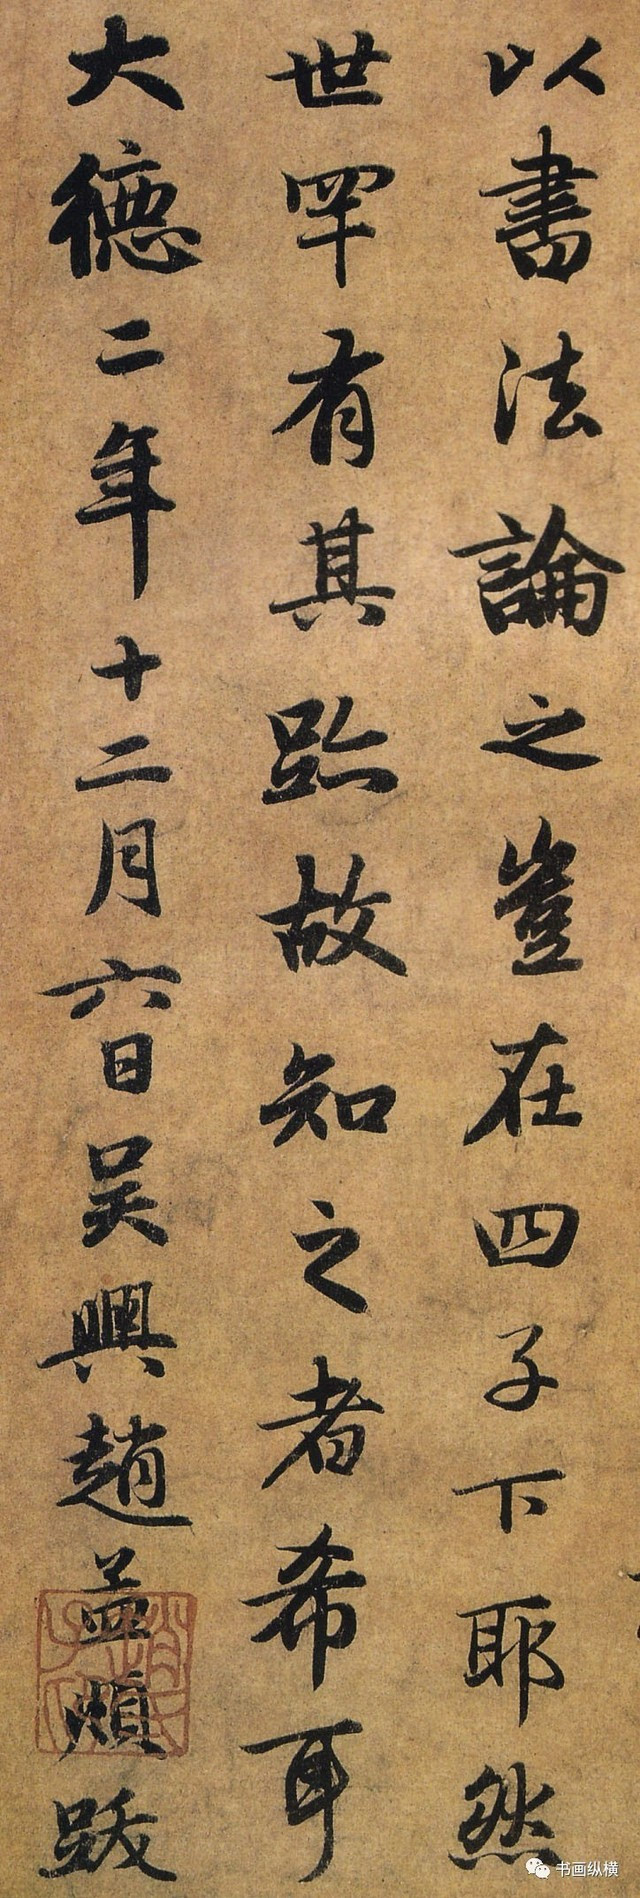 以書法論之豈在四子下耶然
世罕有其跡故知之者希耳
大德二年十二月六日吴興趙孟頫跋
书画纵横